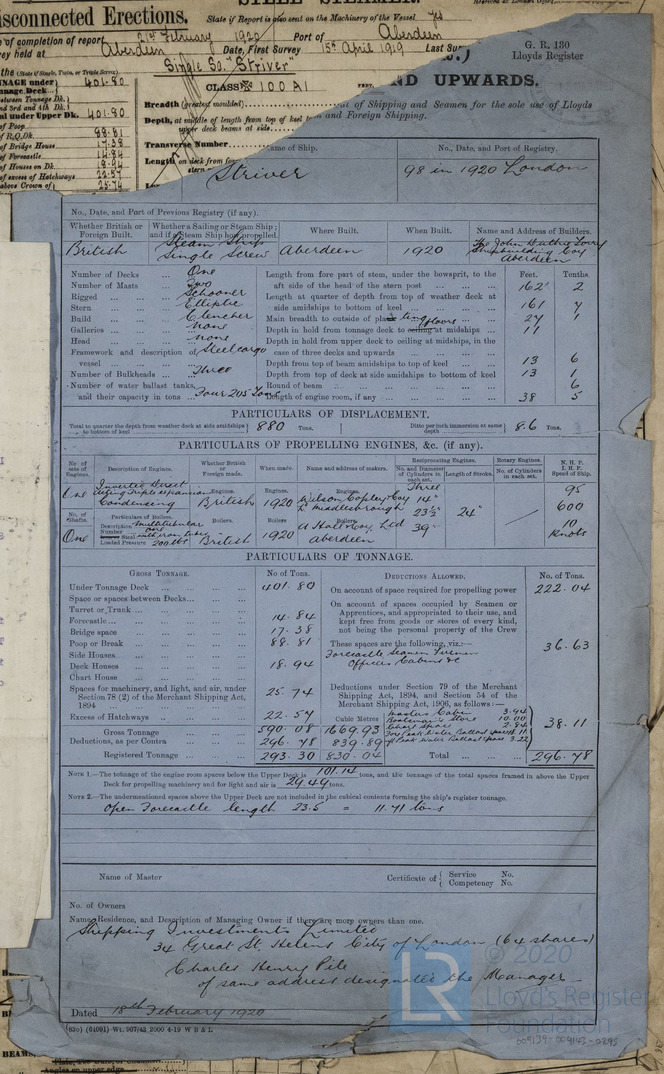 STEEL STEAMER.
Disconnected Erections.
State if Report is also sent on the Machinery of the Vessel Yes
of completion of report 21st February 1920 Port of Aberdeen
held at Aberdeen Date, First Survey 15th April 1919 Last Sur
the (State if Single, Twin, or Triple Screw) Single Sc. "Striver"
CLASS 100 A1
G. R. 130
Lloyds Register
ND UPWARDS.
TONNAGE under Tonnage Deck 401.80
under Upper Dk. 401.80
of Poop 88.81
of R.Q.Dk.
of Bridge House 17.38
of Forecastle 14.84
of Houses on Dk. 18.94
of excess of Hatchways 22.57
above Crown of 25.74
Breadth (greatest moulded)
of Shipping and Seamen for the sole use of Lloyds
Depth, at middle of length from top of keel
and Foreign Shipping.
upper deck beams at side
Transverse Number
Length on deck from fore
Name of Ship.
No., Date, and Port of Registry.
Striver
98 in 1920 London
No., Date, and Port of Previous Registry (if any).
Whether British or Foreign Built.
Whether a Sailing or Steam Ship; and if a Steam Ship how propelled.
Where Built.
When Built.
Name and Address of Builders.
British
Steam Ship
Single Screw
Aberdeen
1920
The John Duthie Torry
Shipbuilding Coy
Aberdeen
Number of Decks ... One
Number of Masts ... Two
Rigged ... Schooner
Stern ... Elliptic
Build ... Clencher
Galleries ... none
Head ... none
Framework and description of vessel ... Steel cargo
Number of Bulkheads ... Three
Number of water ballast tanks, and their capacity in tons ... Four 205 Tons
Feet. Tenths.
Length from fore part of stem, under the bowsprit, to the aft side of the head of the stern post ... 162 2
Length at quarter of depth from top of weather deck at side amidships to bottom of keel ... 161 7
Main breadth to outside of plank ... 27 1
Depth in hold from tonnage deck to ceiling at midships ... 11
Depth in hold from upper deck to ceiling at midships, in the case of three decks and upwards ...
Depth from top of beam amidships to top of keel ... 13 6
Depth from top of deck at side amidships to bottom of keel ... 13 1
Round of beam ... 6
Length of engine room, if any ... 38 5
PARTICULARS OF DISPLACEMENT.
Total to quarter the depth from weather deck at side amidships to bottom of keel 880 Tons.
Ditto per inch immersion at same depth 8.6 Tons.
PARTICULARS OF PROPELLING ENGINES, &c. (if any).
No. of sets of Engines.
Description of Engines.
Whether British or Foreign made.
When made.
Name and address of makers.
Reciprocating Engines.
No. and Diameter of Cylinders in each set.
Length of Stroke.
Rotary Engines.
No. of Cylinders in each set.
N. H. P.
I. H. P.
Speed of Ship.
One
Inverted Direct
Acting Triple expansion
Condensing
Engines.
British
Engines.
1920
Engines.
Wilson Copley & Coy
Middlesbrough
Three
14"
23½
39"
24"
95
600
10
Knots
No. of Shafts.
One
Particulars of Boilers.
Description multitubular
Number one
Loaded Pressure 200 lbs
Boilers.
British
Boilers
1920
Boilers.
A Hall & Coy, Ltd
Aberdeen
PARTICULARS OF TONNAGE.
GROSS TONNAGE.
No of Tons.
DEDUCTIONS ALLOWED.
No. of Tons.
Under Tonnage Deck ... 401.80
Space or spaces between Decks...
Turret or Trunk ...
Forecastle ... 14.84
Bridge space ... 17.38
Poop or Break ... 88.81
Side Houses ...
Deck Houses ... 18.94
Chart House ...
Spaces for machinery, and light, and air, under Section 78 (2) of the Merchant Shipping Act, 1894 25.74
Excess of Hatchways ... 22.57
Cubic Metres
Gross Tonnage ... 590.08 1669.93
Deductions, as per Contra ... 296.78 839.89
Registered Tonnage ... 293.30 830.04
On account of space required for propelling power 222.04
On account of spaces occupied by Seamen or Apprentices, and appropriated to their use, and kept free from goods or stores of every kind, not being the personal property of the Crew
These spaces are the following, viz.:— 36.63
Forecastle Seamen Firemen
Officers Cabins &c
Deductions under Section 79 of the Merchant Shipping Act, 1894, and Section 54 of the Merchant Shipping Act, 1906, as follows:—
Masters Cabin 3.94
Boatswain's Store 10.00
Chart Space 2.84
Fore Peak Water Ballast space
Aft Peak Water Ballast space 3.22
38.11
Total ... 296.78
NOTE 1.—The tonnage of the engine room spaces below the Upper Deck is 101.14 tons, and the tonnage of the total spaces framed in above the Upper
Deck for propelling machinery and for light and air is 29.49 tons.
NOTE 2.—The undermentioned spaces above the Upper Deck are not included in the cubical contents forming the ship's register tonnage.
Open Forecastle length 23.5 = 11.71 tons
Name of Master
Certificate of { Service No.
Competency No.
No. of Owners
Name, Residence, and Description of Managing Owner if there are more owners than one.
Shipping Investments Limited
34 Great St. Helens City of London (64 shares)
Charles Henry Pile
of same address designated the Manager
Dated 18th February 1920
(630) (64091) Wt. 907/43 2000 4-19 W B & L
LR
© 2020
Lloyd's Register
Foundation
009139-009143-0295